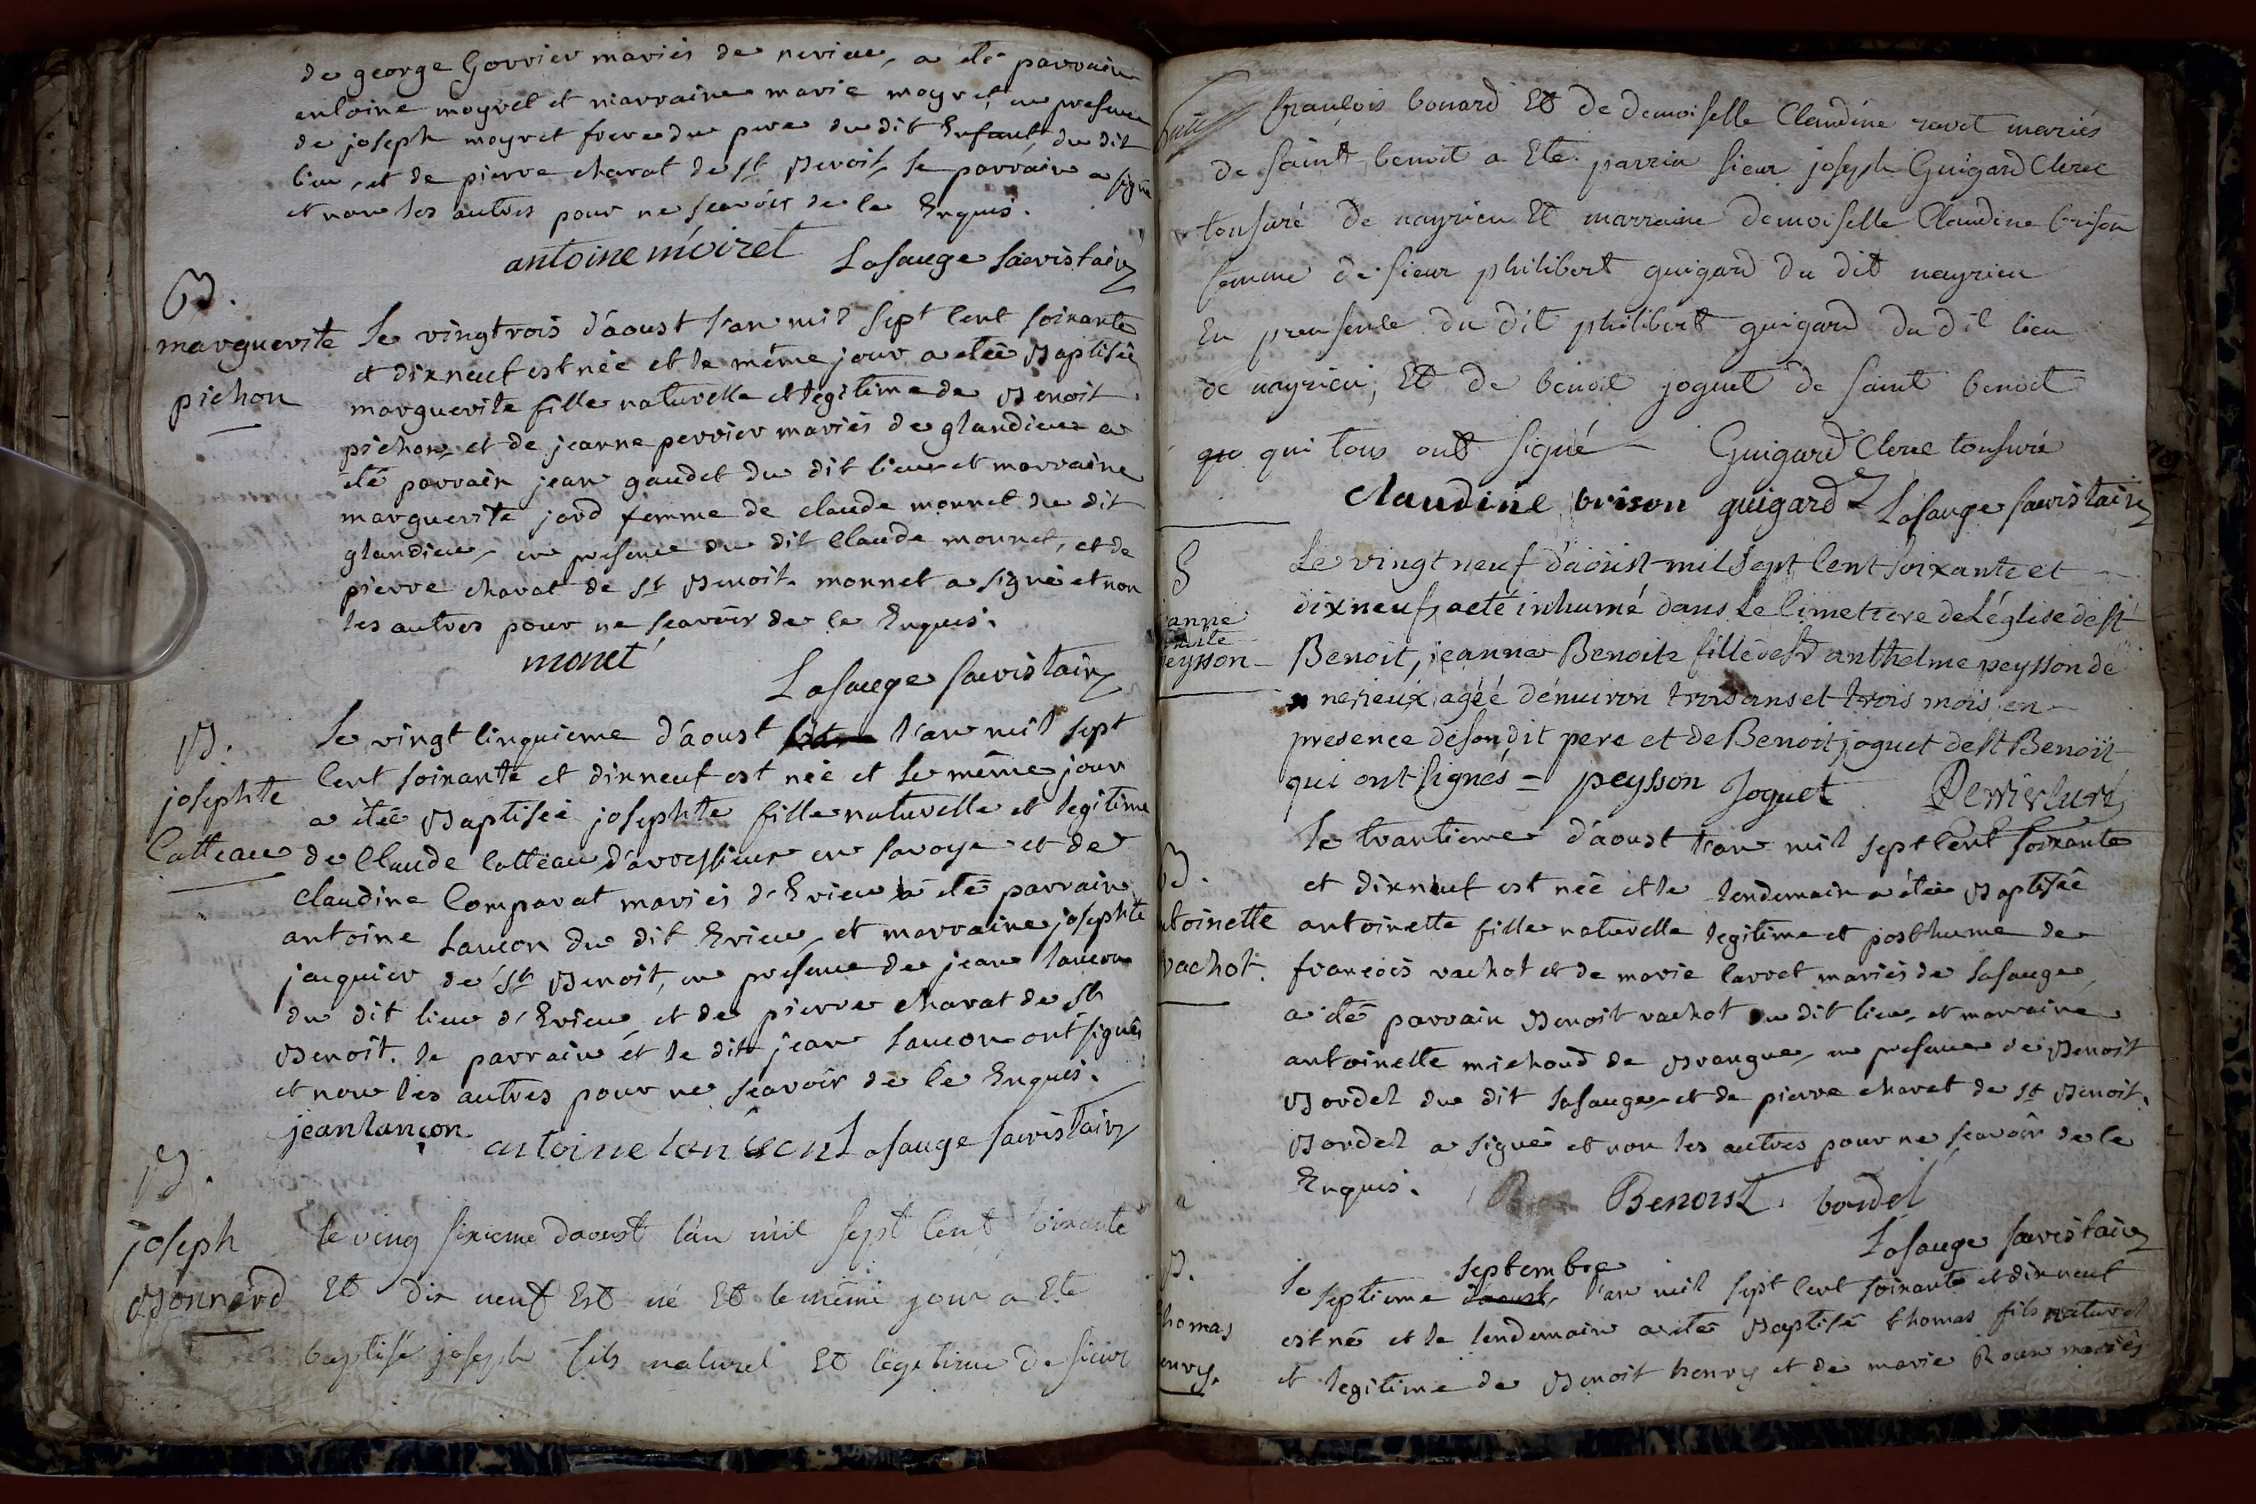 de george Gorrier mariés de nerieu, a été parrain
antoine moyret et marraine marie moyret, en presence
de joseph moyret frere du pere du dit Enfant du dit
lieu, et de pierre charat de st Benoit, le parrain a signé
et non les autres pour ne scavoir de ce Enquis.
antoine moiret Lasauge sacristain
B.
marguerite
pichon
Le vingtrois d'aoust l'an mil sept cent soixante
et dixneuf est née et le même jour a étée Baptisée
marguerite fille naturelle et legitime de Benoit
pichon, et de jeanne perrier mariés de glandieu a
été parrain jean gaudet du dit lieu et marraine
marguerite jard femme de claude monnet du dit
glandieu, en presence du dit Claude monnet, et de
pierre charat de st Benoit. monnet a signé et non
les autres pour ne scavoir de ce Enquis.
monet
Lasauge sacristain
B.
josephte
Catteau
Le vingt cinquieme d'aoust l'an mil sept
cent soixante et dixneuf est née et le même jour
a étée Baptisée josephte fille naturelle et legitime
de Claude Catteau d'arressieux en savoye et de
claudine Comparat mariés d'Erieu a été parrain
antoine Lancon du dit Erieu, et marraine josephte
jacquier de st Benoit, en presence de jean lancon
du dit lieu d'Erieu, et de pierre charat de st
Benoit. le parrain et le dit jean Lancon ont signés
et non les autres pour ne scavoir de ce Enquis.
jean lançon antoine lancon Lasauge sacristain
B.
joseph
Bonnard
le ving sixieme daoust l'an mil sept Cent soixante
Et dix neuf Est né Et le même jour a Ete
baptisé joseph fils naturel Et légitime De sieur
suite
françois bonard Et de demoiselle Claudine ravet mariés
de saint benoit a Ete parrin sieur joseph Guigard Clerc
tonsuré de nayrieu Et marraine demoiselle Claudine brison
femme de sieur philibert guigard du dit nayrieu
En preusence du dit philibert guigard du dit lieu
de nayrieu, Et de benoit joguet de saint benoit
qui tous ont signé Guigard Clerc tonsuré
claudine brison guigard Lasauge sacristain
S
janne
benoite
peysson
Le vingt neuf d'aoust mil sept cent soixante et
dixneuf, a eté inhumé dans le cimetiere de L'église de st
Benoit, jeanne Benoite fille de sr anthelme peysson de
nerieux, agéé dénuiron trois ans et trois mois en
presence de son dit pere et de Benoit joguet de st Benoit
qui ont signés = peysson Joguet Perrier curé
B.
antoinette
vachot.
Le trantieme d'aoust l'an mil sept cent soixante
et dixneuf est née et le lendemain a étée Baptisée
antoinette fille naturelle legitime et posthume de
francois vachot et de marie Carret mariés de Lasauge,
a été parrain Benoit vachot du dit lieu, et marraine
antoinette michoud de Brangue, en presence de Benoit
Bordel du dit Lasauge, et de pierre charat de st Benoit.
Bordel a signé et non les autres pour ne scavoir de ce
Enquis. Benoist bordel
Lasauge sacristain
B.
thomas
henry.
septembre
Le septieme d'aoust, l'an mil sept cent soixante et dixneuf
est né et le lendemain a été Baptisé thomas fils naturel
et legitime de Benoit henry et de marie Roux mariés